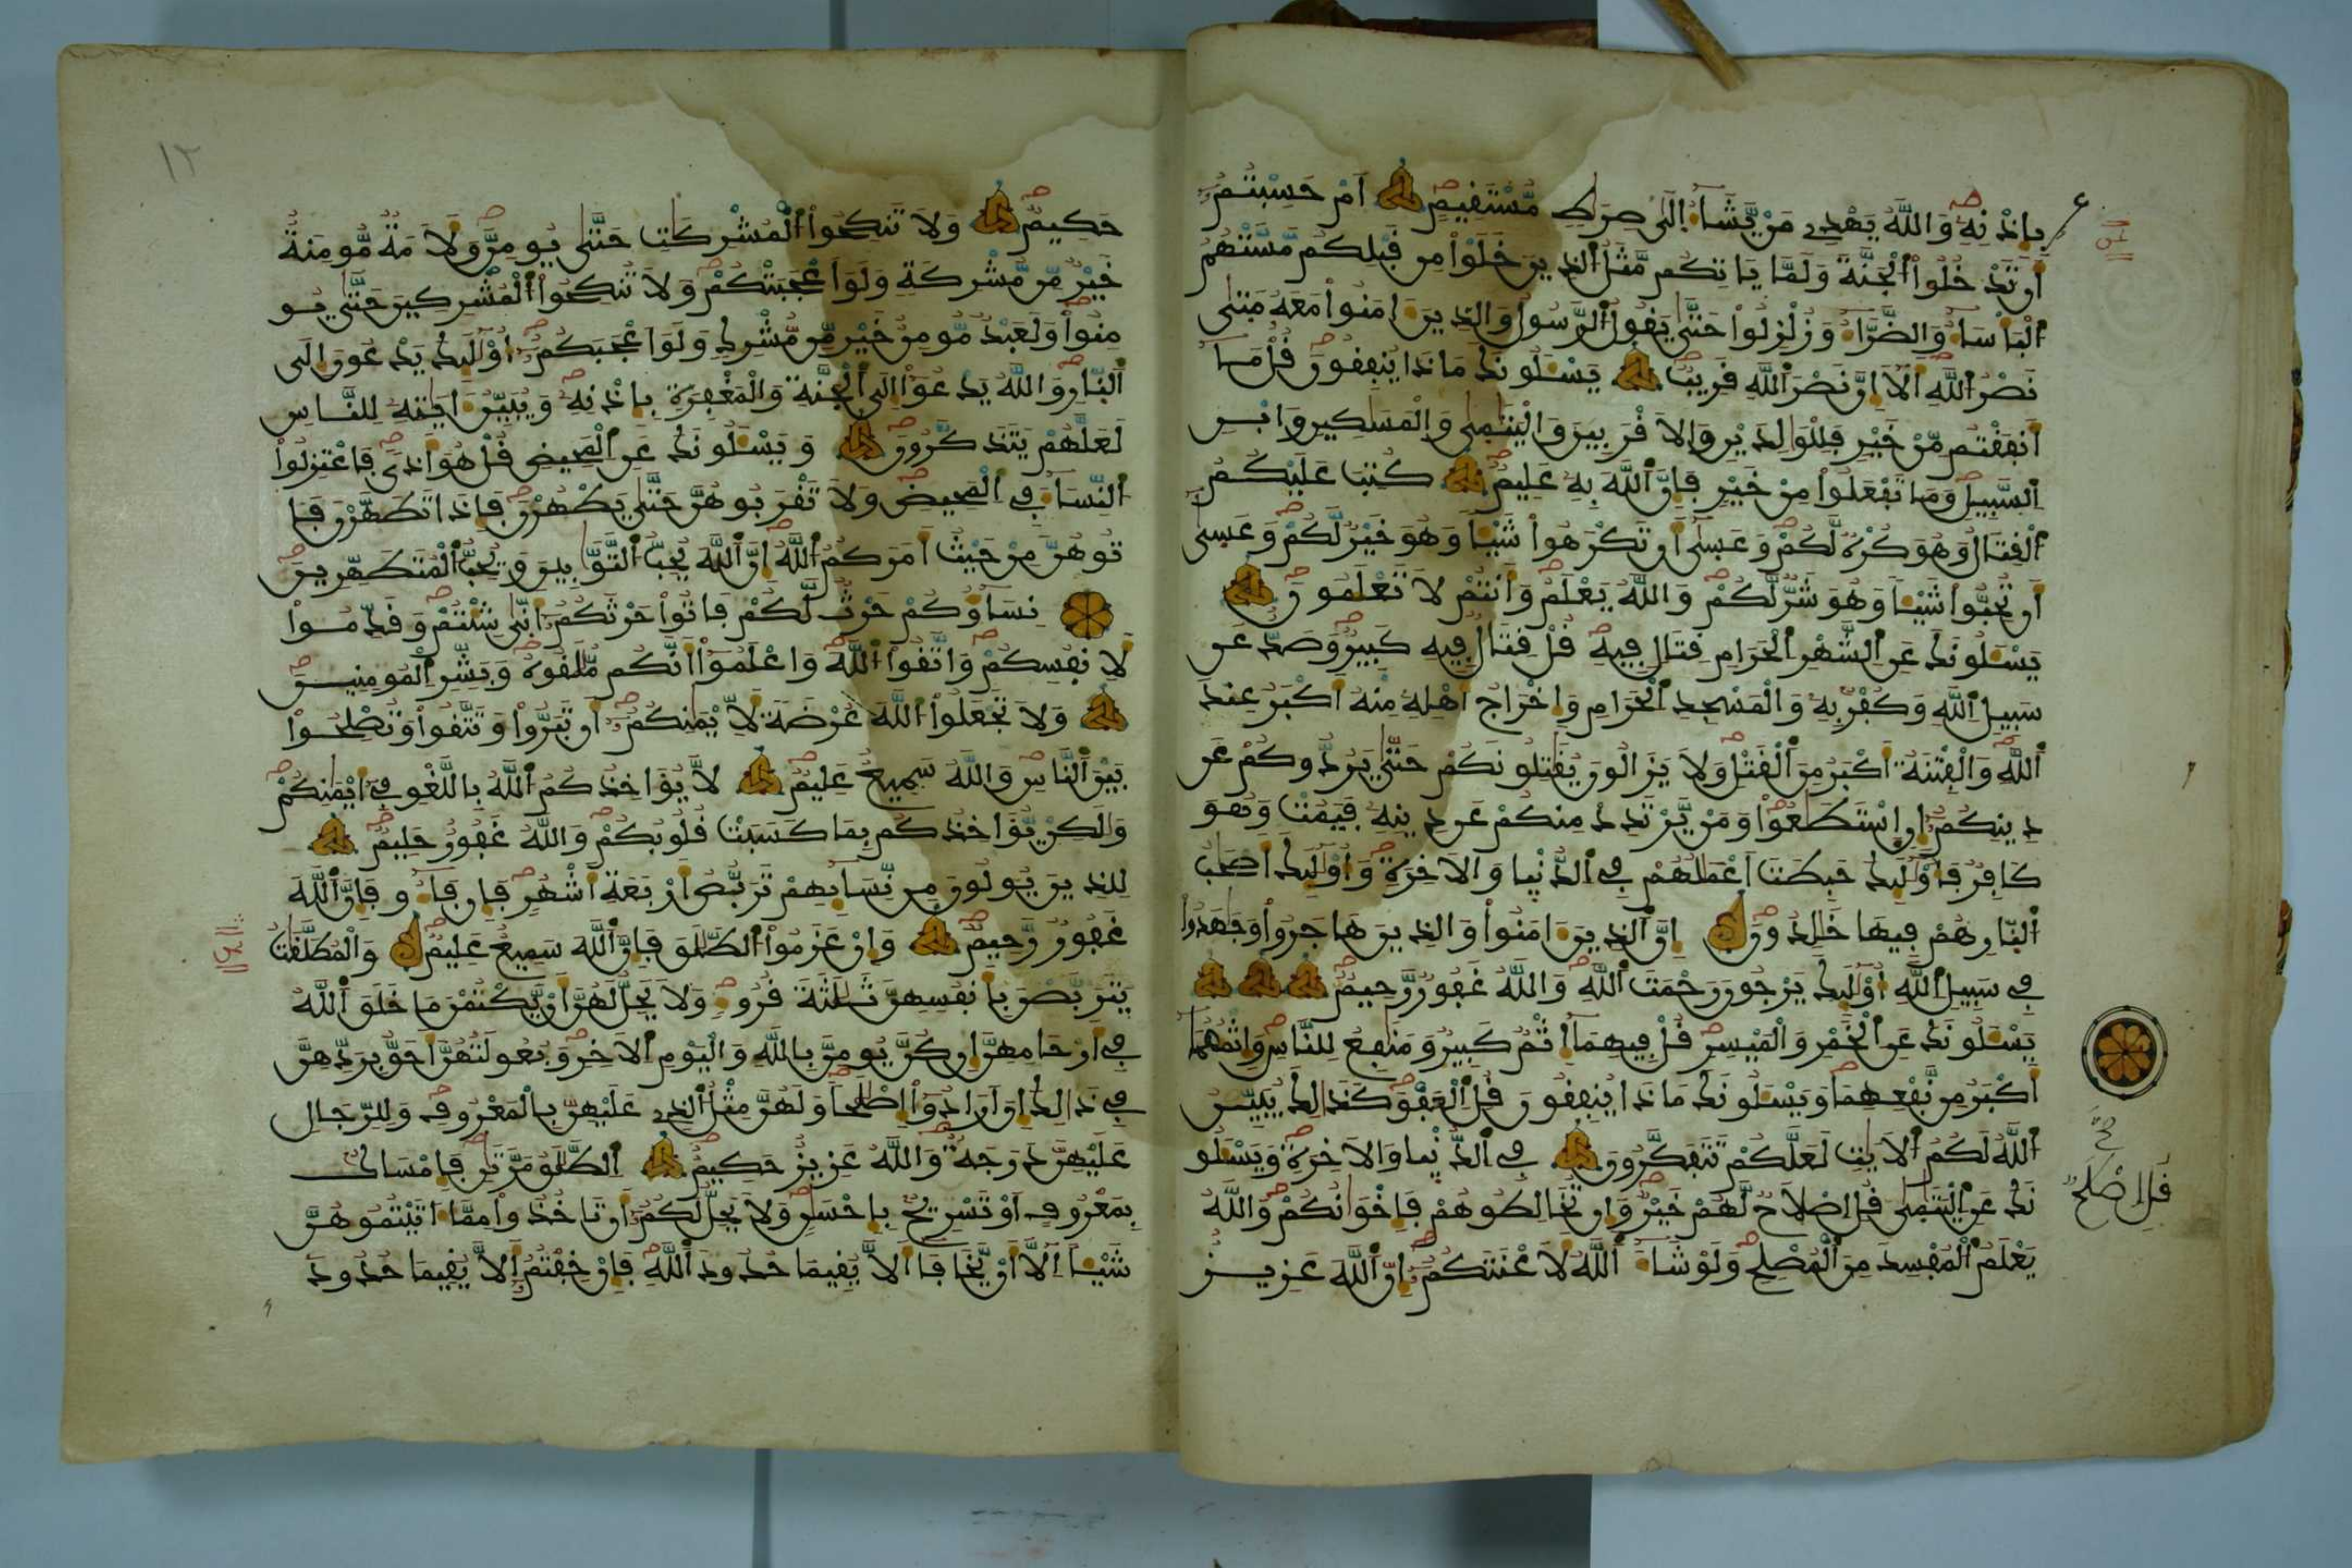 بِإِذْنِهِ وَاللَّهُ يَهْدِي مَنْ يَّشَاءُ إِلَى صِرَاطٍ مُّسْتَقِيمٍ أَمْ حَسِبْتُمُ
أَن تَدْخُلُوا الْجَنَّةَ وَلَمَّا يَاتِكُم مَّثَلُ الذِينَ خَلَوْا مِن قَبْلِكُم مَّسَّتْهُمُ
الْبَأْسَاءُ وَالضَّرَّاءُ وَزُلْزِلُوا حَتَّى يَقُولُ الرَّسُولُ وَالذِينَ ءَامَنُوا مَعَهُ مَتَى
نَصْرُ اللَّهِ أَلَا إِنَّ نَصْرَ اللَّهِ قَرِيبٌ يَسْـَٔلُونَكَ مَاذَا يُنفِقُونَ قُلْ مَا
أَنفَقْتُم مِّنْ خَيْرٍ فَلِلْوَالِدَيْنِ وَالَاقْرَبِينَ وَالْيَتَامَى وَالْمَسَاكِينِ وَابْنِ
السَّبِيلِ وَمَا تَفْعَلُوا مِنْ خَيْرٍ فَإِنَّ اللَّهَ بِهِ عَلِيمٌ كُتِبَ عَلَيْكُمُ
الْقِتَالُ وَهُوَ كُرْهٌ لَّكُمْ وَعَسَى أَن تَكْرَهُوا شَيْـًٔا وَهُوَ خَيْرٌ لَّكُمْ وَعَسَى
أَن تُحِبُّوا شَيْـًٔا وَهُوَ شَرٌّ لَّكُمْ وَاللَّهُ يَعْلَمُ وَأَنتُمْ لَا تَعْلَمُونَ
يَسْـَٔلُونَكَ عَنِ الشَّهْرِ الْحَرَامِ قِتَالٍ فِيهِ قُلْ قِتَالٌ فِيهِ كَبِيرٌ وَصَدٌّ عَن
سَبِيلِ اللَّهِ وَكُفْرٌ بِهِ وَالْمَسْجِدِ الْحَرَامِ وَإِخْرَاجُ أَهْلِهِ مِنْهُ أَكْبَرُ عِندَ
اللَّهِ وَالْفِتْنَةُ أَكْبَرُ مِنَ الْقَتْلِ وَلَا يَزَالُونَ يُقَاتِلُونَكُمْ حَتَّى يَرُدُّوكُمْ عَن
دِينِكُمُ إِنِ اسْتَطَاعُوا وَمَنْ يَّرْتَدِدْ مِنكُمْ عَن دِينِهِ فَيَمُتْ وَهُوَ
كَافِرٌ فَأُولَٰئِكَ حَبِطَتَ اعْمَالُهُمْ فِي الدُّنْيَا وَالَاخِرَةِ وَأُولَٰئِكَ أَصْحَابُ
النَّارِ هُمْ فِيهَا خَالِدُونَ إِنَّ الذِينَ ءَامَنُوا وَالذِينَ هَاجَرُوا وَجَاهَدُوا
فِي سَبِيلِ اللَّهِ أُولَٰئِكَ يَرْجُونَ رَحْمَتَ اللَّهِ وَاللَّهُ غَفُورٌ رَّحِيمٌ
يَسْـَٔلُونَكَ عَنِ الْخَمْرِ وَالْمَيْسِرِ قُلْ فِيهِمَا إِثْمٌ كَبِيرٌ وَمَنَافِعُ لِلنَّاسِ وَإِثْمُهُمَا
أَكْبَرُ مِن نَّفْعِهِمَا وَيَسْـَٔلُونَكَ مَاذَا يُنفِقُونَ قُلِ الْعَفْوَ كَذَٰلِكَ يُبَيِّنُ
اللَّهُ لَكُمُ الَايَاتِ لَعَلَّكُمْ تَتَفَكَّرُونَ فِي الدُّنْيَا وَالَاخِرَةِ وَيَسْـَٔلُو
نَكَ عَنِ الْيَتَامَى قُلِ اصْلَاحٌ لَّهُمْ خَيْرٌ وَإِن تُخَالِطُوهُمْ فَإِخْوَانُكُمْ وَاللَّهُ
يَعْلَمُ الْمُفْسِدَ مِنَ الْمُصْلِحِ وَلَوْ شَاءَ اللَّهُ لَأَعْنَتَكُمُ إِنَّ اللَّهَ عَزِيزٌ
قُلِ اصْلَحٌ
١٢
حَكِيمٌ وَلَا تَنكِحُوا الْمُشْرِكَاتِ حَتَّى يُومِنَّ وَلَأَمَةٌ مُّومِنَةٌ
خَيْرٌ مِّن مُّشْرِكَةٍ وَلَوَ اعْجَبَتْكُمْ وَلَا تُنكِحُوا الْمُشْرِكِينَ حَتَّى يُو
مِنُوا وَلَعَبْدٌ مُّومِنٌ خَيْرٌ مِّن مُّشْرِكٍ وَلَوَ اعْجَبَكُمُ أُولَٰئِكَ يَدْعُونَ إِلَى
النَّارِ وَاللَّهُ يَدْعُوا إِلَى الْجَنَّةِ وَالْمَغْفِرَةِ بِإِذْنِهِ وَيُبَيِّنُ ءَايَاتِهِ لِلنَّاسِ
لَعَلَّهُمْ يَتَذَكَّرُونَ وَيَسْـَٔلُونَكَ عَنِ الْمَحِيضِ قُلْ هُوَ أَذًى فَاعْتَزِلُوا
النِّسَاءَ فِي الْمَحِيضِ وَلَا تَقْرَبُوهُنَّ حَتَّى يَطْهُرْنَ فَإِذَا تَطَهَّرْنَ فَا
تُوهُنَّ مِنْ حَيْثُ أَمَرَكُمُ اللَّهُ إِنَّ اللَّهَ يُحِبُّ التَّوَّابِينَ وَيُحِبُّ الْمُتَطَهِّرِينَ
نِسَاؤُكُمْ حَرْثٌ لَّكُمْ فَاتُوا حَرْثَكُمُ أَنَّى شِئْتُمْ وَقَدِّمُوا
لِأَنفُسِكُمْ وَاتَّقُوا اللَّهَ وَاعْلَمُوا أَنَّكُم مُّلَاقُوهُ وَبَشِّرِ الْمُومِنِينَ
وَلَا تَجْعَلُوا اللَّهَ عُرْضَةً لِّأَيْمَانِكُمُ أَن تَبَرُّوا وَتَتَّقُوا وَتُصْلِحُوا
بَيْنَ النَّاسِ وَاللَّهُ سَمِيعٌ عَلِيمٌ لَّا يُؤَاخِذُكُمُ اللَّهُ بِاللَّغْوِ فِي أَيْمَانِكُمْ
وَلَٰكِنْ يُّؤَاخِذُكُم بِمَا كَسَبَتْ قُلُوبُكُمْ وَاللَّهُ غَفُورٌ حَلِيمٌ
لِلذِينَ يُولُونَ مِن نِّسَائِهِمْ تَرَبُّصُ أَرْبَعَةِ أَشْهُرٍ فَإِن فَاءُو فَإِنَّ اللَّهَ
غَفُورٌ رَّحِيمٌ وَإِنْ عَزَمُوا الطَّلَاقَ فَإِنَّ اللَّهَ سَمِيعٌ عَلِيمٌ وَالْمُطَلَّقَاتُ
يَتَرَبَّصْنَ بِأَنفُسِهِنَّ ثَلَاثَةَ قُرُوءٍ وَلَا يَحِلُّ لَهُنَّ أَنْ يَّكْتُمْنَ مَا خَلَقَ اللَّهُ
فِي أَرْحَامِهِنَّ إِن كُنَّ يُومِنَّ بِاللَّهِ وَالْيَوْمِ الَاخِرِ وَبُعُولَتُهُنَّ أَحَقُّ بِرَدِّهِنَّ
فِي ذَٰلِكَ إِنَ ارَادُوا إِصْلَاحًا وَلَهُنَّ مِثْلُ الذِي عَلَيْهِنَّ بِالْمَعْرُوفِ وَلِلرِّجَالِ
عَلَيْهِنَّ دَرَجَةٌ وَاللَّهُ عَزِيزٌ حَكِيمٌ الطَّلَاقُ مَرَّتَانِ فَإِمْسَاكٌ
بِمَعْرُوفٍ أَوْ تَسْرِيحٌ بِإِحْسَانٍ وَلَا يَحِلُّ لَكُمُ أَن تَاخُذُوا مِمَّا ءَاتَيْتُمُوهُنَّ
شَيْـًٔا إِلَّا أَنْ يَّخَافَا أَلَّا يُقِيمَا حُدُودَ اللَّهِ فَإِنْ خِفْتُمُ أَلَّا يُقِيمَا حُدُودَ